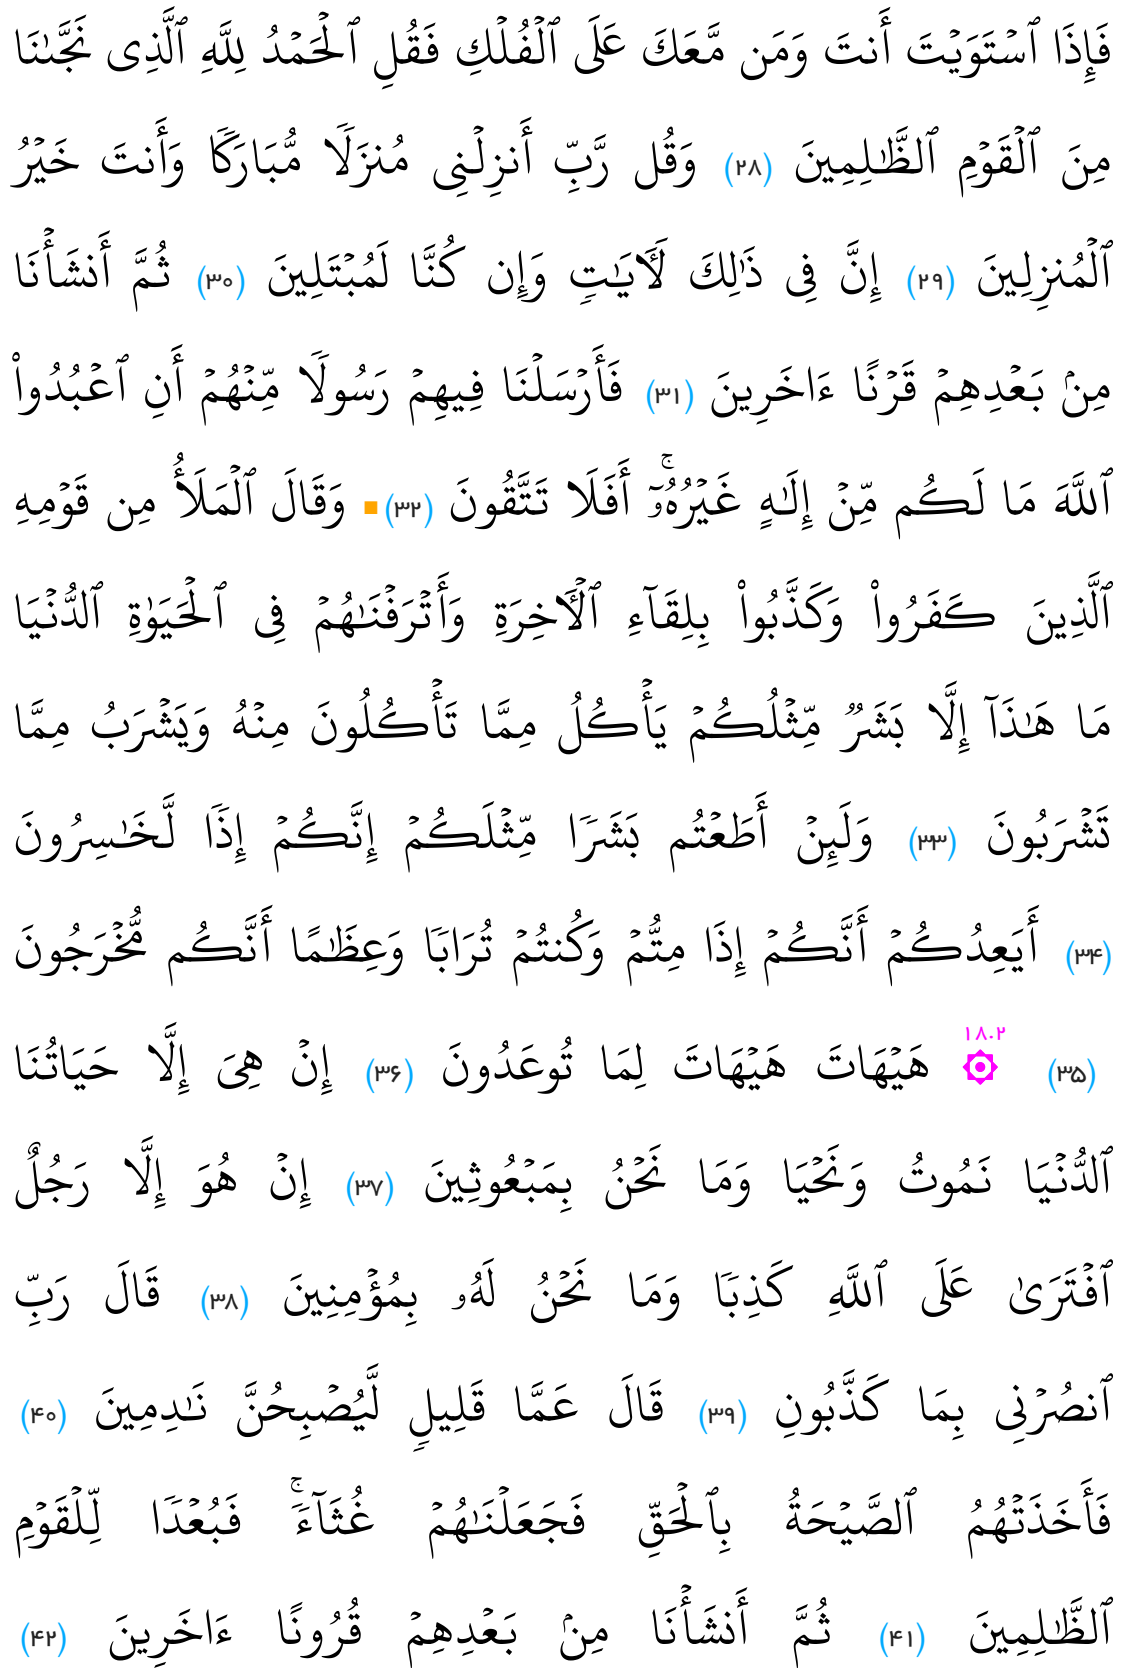 فَإِذَا ٱسْتَوَيْتَ أَنتَ وَمَن مَّعَكَ عَلَى ٱلْفُلْكِ فَقُلِ ٱلْحَمْدُ لِلَّهِ ٱلَّذِى نَجَّىٰنَا
مِنَ ٱلْقَوْمِ ٱلظَّٰلِمِينَ (۲۸) وَقُل رَّبِّ أَنزِلْنِى مُنزَلًا مُّبَارَكًا وَأَنتَ خَيْرُ
ٱلْمُنزِلِينَ (۲۹) إِنَّ فِى ذَٰلِكَ لَءَايَٰتٍ وَإِن كُنَّا لَمُبْتَلِينَ (۳۰) ثُمَّ أَنشَأْنَا
مِنۢ بَعْدِهِمْ قَرْنًا ءَاخَرِينَ (۳۱) فَأَرْسَلْنَا فِيهِمْ رَسُولًا مِّنْهُمْ أَنِ ٱعْبُدُوا۟
ٱللَّهَ مَا لَكُم مِّنْ إِلَٰهٍ غَيْرُهُۥٓ ۚ أَفَلَا تَتَّقُونَ (۳۲) وَقَالَ ٱلْمَلَأُ مِن قَوْمِهِ
ٱلَّذِينَ كَفَرُوا۟ وَكَذَّبُوا۟ بِلِقَآءِ ٱلْءَاخِرَةِ وَأَتْرَفْنَٰهُمْ فِى ٱلْحَيَوٰةِ ٱلدُّنْيَا
مَا هَٰذَآ إِلَّا بَشَرٌ مِّثْلُكُمْ يَأْكُلُ مِمَّا تَأْكُلُونَ مِنْهُ وَيَشْرَبُ مِمَّا
تَشْرَبُونَ (۳۳) وَلَئِنْ أَطَعْتُم بَشَرًا مِّثْلَكُمْ إِنَّكُمْ إِذًا لَّخَٰسِرُونَ
(۳۴) أَيَعِدُكُمْ أَنَّكُمْ إِذَا مِتُّمْ وَكُنتُمْ تُرَابًا وَعِظَٰمًا أَنَّكُم مُّخْرَجُونَ
(۳۵) ۱۸.۲ ۞ هَيْهَاتَ هَيْهَاتَ لِمَا تُوعَدُونَ (۳۶) إِنْ هِىَ إِلَّا حَيَاتُنَا
ٱلدُّنْيَا نَمُوتُ وَنَحْيَا وَمَا نَحْنُ بِمَبْعُوثِينَ (۳۷) إِنْ هُوَ إِلَّا رَجُلٌ
ٱفْتَرَىٰ عَلَى ٱللَّهِ كَذِبًا وَمَا نَحْنُ لَهُۥ بِمُؤْمِنِينَ (۳۸) قَالَ رَبِّ
ٱنصُرْنِى بِمَا كَذَّبُونِ (۳۹) قَالَ عَمَّا قَلِيلٍ لَّيُصْبِحُنَّ نَٰدِمِينَ (۴۰)
فَأَخَذَتْهُمُ ٱلصَّيْحَةُ بِٱلْحَقِّ فَجَعَلْنَٰهُمْ غُثَآءً ۚ فَبُعْدًا لِّلْقَوْمِ
ٱلظَّٰلِمِينَ (۴۱) ثُمَّ أَنشَأْنَا مِنۢ بَعْدِهِمْ قُرُونًا ءَاخَرِينَ (۴۲)